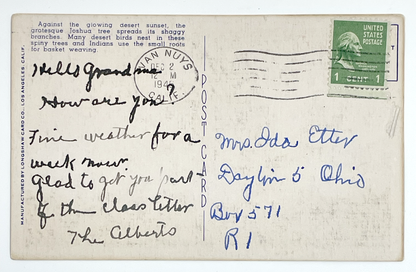 Against the growing desert sunset, the
grotesque Joshua tree spreads its shaggy
branches. Many desert birds nest in these
spiny trees and Indians use the small roots
for basket weaving.
MANUFACTURED BY LONGSHAW CARD CO., LOS ANGELES, CALIF.
VAN NUYS
DEC 2
M
194
CALIF.
UNITED STATES
POSTAGE
1 CENT 1
POST CARD
Hello Grandma
How are you?
Fine weather for a
week now.
Glad to get your part
of the class letter
The Alberts
Mrs. Ida Etter
Dayton 5 Ohio
Box 571
R1